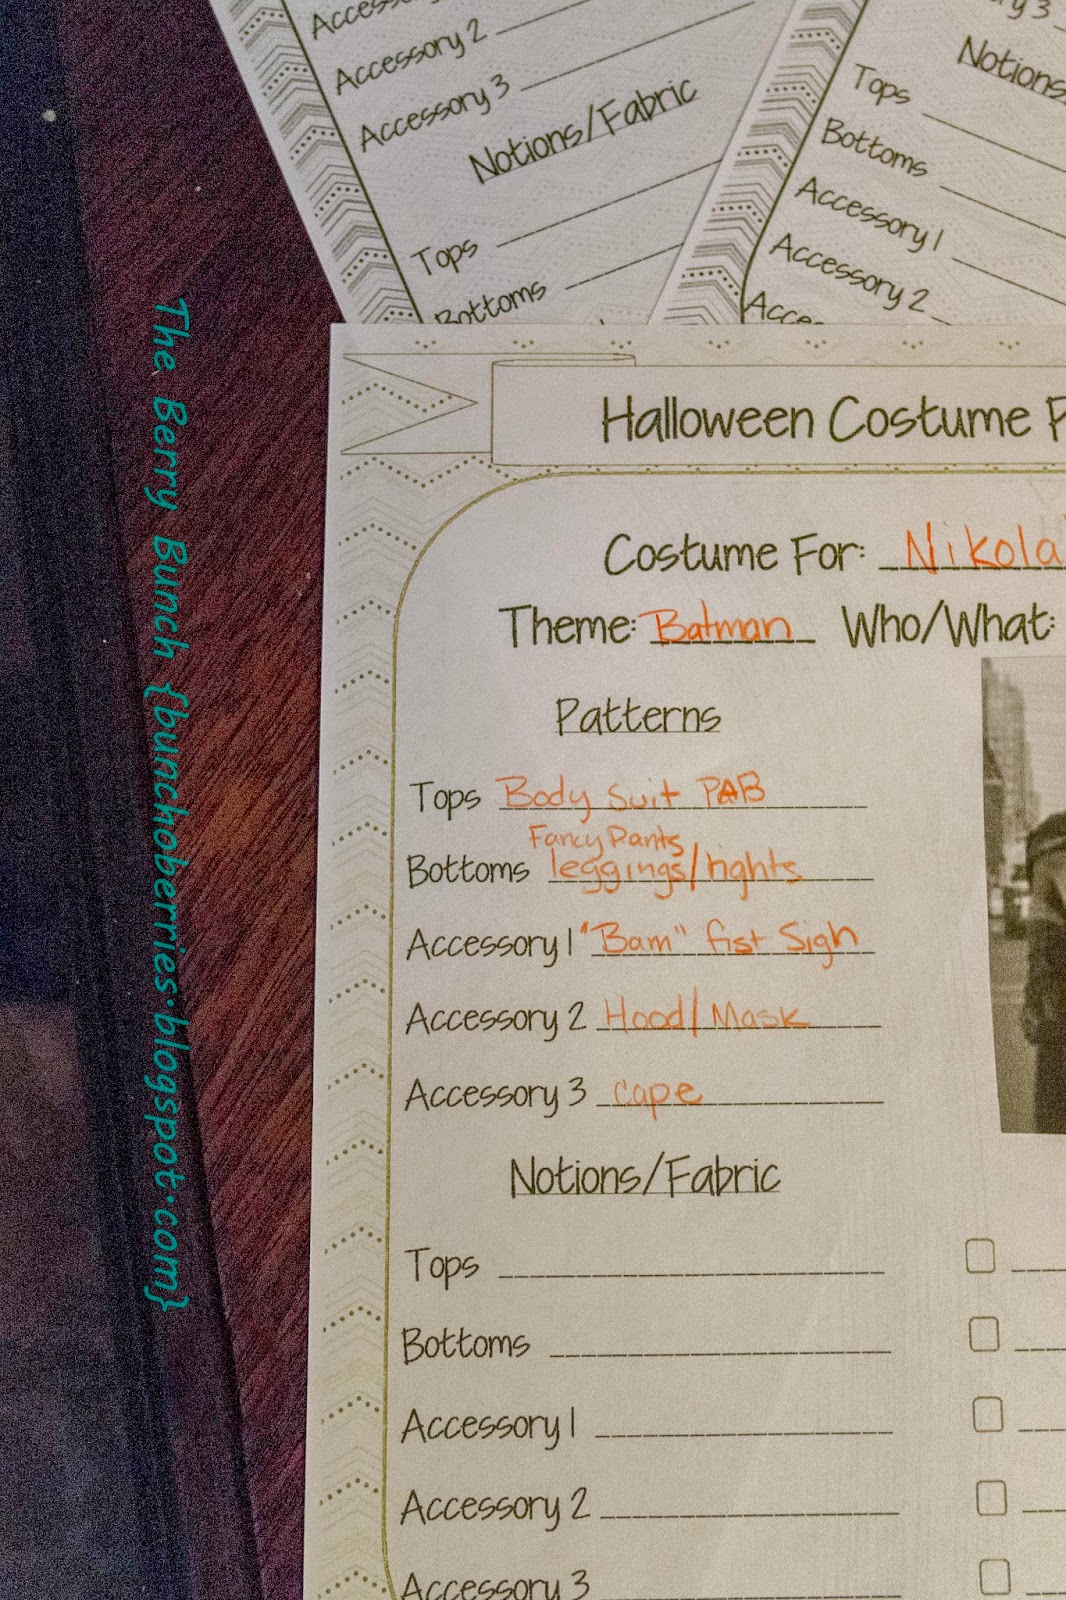 Accessory 2
Accessory 3
Notions/Fabric
Tops
Bottoms
Notions
Tops
Bottoms
Accessory 1
Accessory 2
Halloween Costume
Costume For: Nikola
Theme: Batman Who/What:
Patterns
Tops Body Suit PAB
Fancy Pants
Bottoms leggings/tights
Accessory 1 "Bam" fist Sign
Accessory 2 Hood/Mask
Accessory 3 cape
Notions/Fabric
Tops
Bottoms
Accessory 1
Accessory 2
Accessory 3
The Berry Bunch {bunchoberries.blogspot.com}